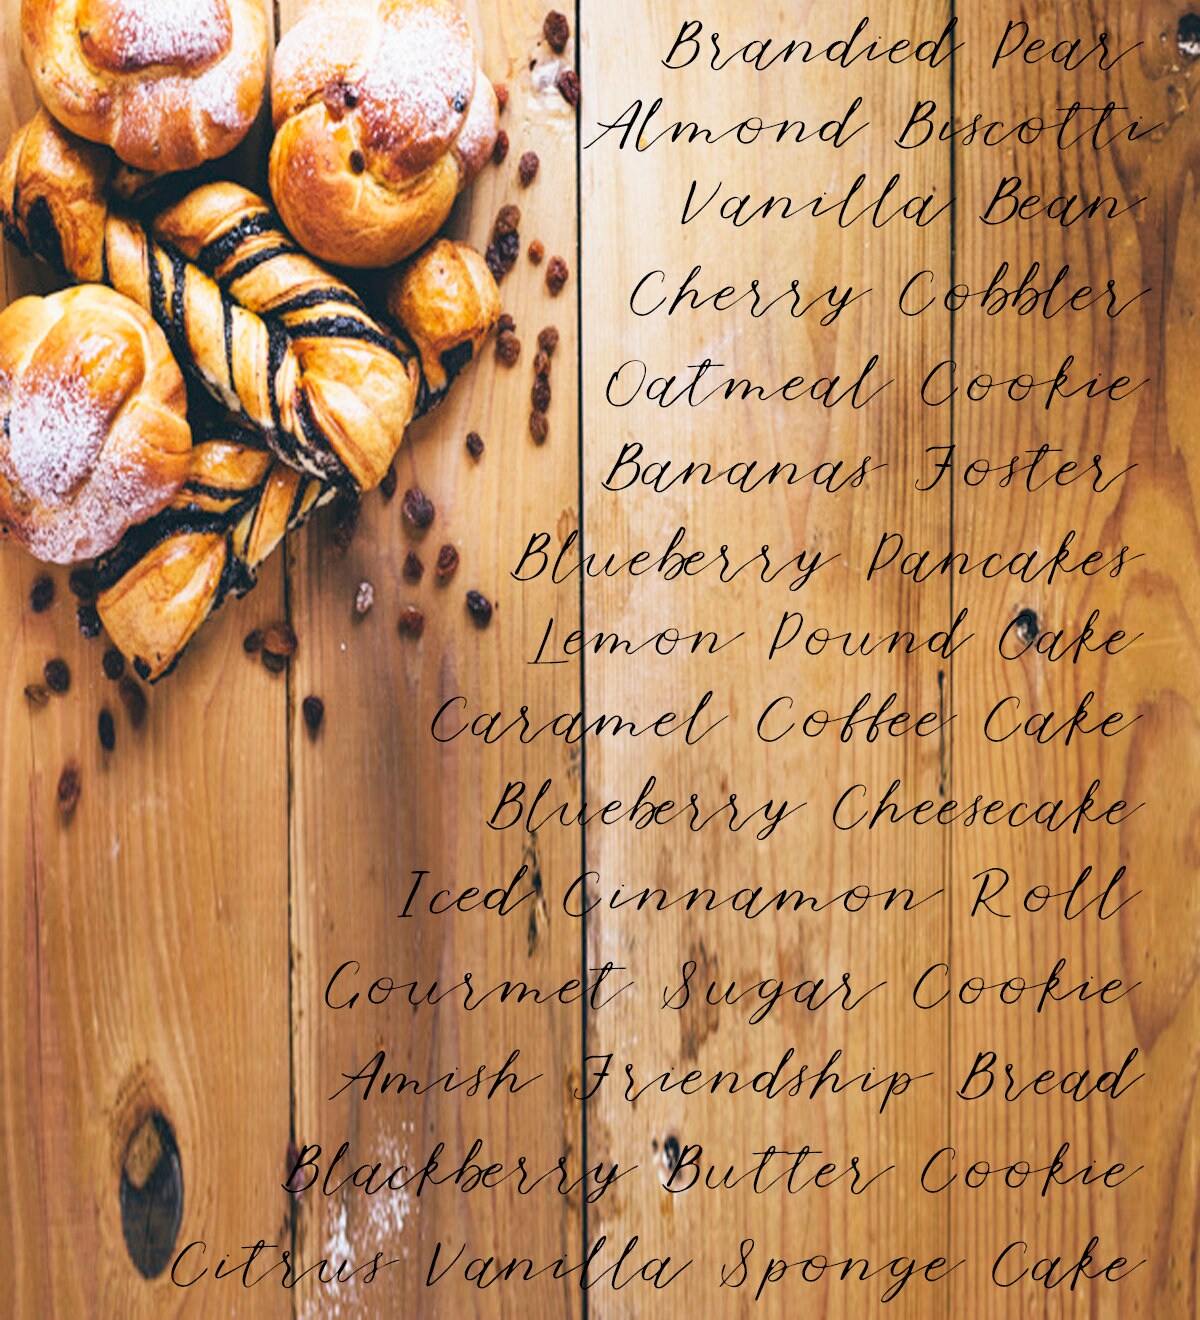 Brandied Pear
Almond Biscotti
Vanilla Bean
Cherry Cobbler
Oatmeal Cookie
Bananas Foster
Blueberry Pancakes
Lemon Pound Cake
Caramel Coffee Cake
Blueberry Cheesecake
Iced Cinnamon Roll
Gourmet Sugar Cookie
Amish Friendship Bread
Blackberry Butter Cookie
Citrus Vanilla Sponge Cake